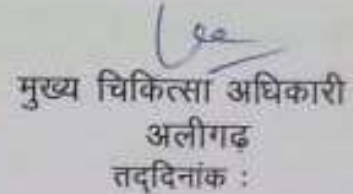 मुख्य चिकित्सा अधिकारी
अलीगढ़
तद्दिनांक :